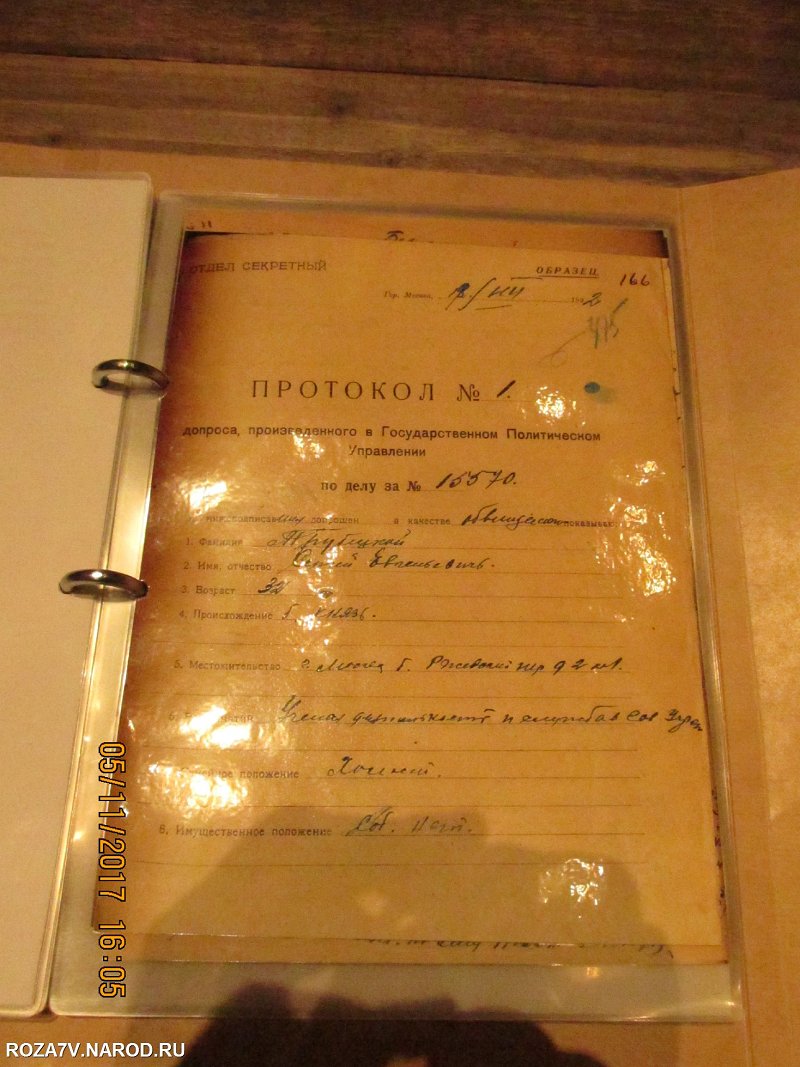 ОТДЕЛ СЕКРЕТНЫЙ
ОБРАЗЕЦ
166
Гор. Москва, /VIII 1922
ПРОТОКОЛ № 1.
допроса, произведенного в Государственном Политическом
Управлении
по делу за № 15570.
допрошен в качестве обвиняемого показываю
1. Фамилия Трубецкой
2. Имя, отчество Сергей Евгеньевич.
3. Возраст 32
4. Происхождение б. князь.
5. Местожительство г. Москва Б. Ржевский пер д 2 кв 1.
Ученая деятельность и служба в Сов Учреж
положение Холост.
8. Имущественное положение Соб. нет.
05/11/2017 16:05
ROZA7V.NAROD.RU